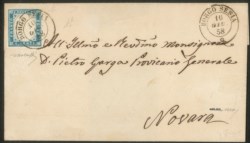 BORGO SESIA
19
58
All' Illmo e Revdmo Monsignore
D. Pietro Garga Provicario Generale
Novara